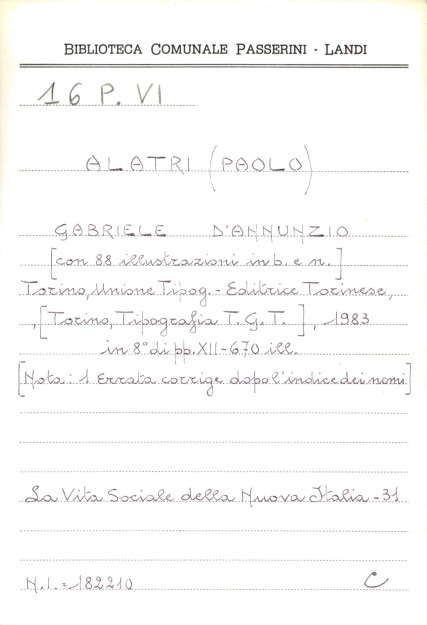 BIBLIOTECA COMUNALE PASSERINI - LANDI
16 P. VI
ALATRI (PAOLO)
GABRIELE D'ANNUNZIO
[con 88 illustrazioni in b. e n.]
Torino, Unione Tipog. - Editrice Torinese,
, [Torino, Tipografia T. G. T.], 1983
in 8° di pp. XII - 670 ill.
[Nota: 1 Errata corrige dopo l'indice dei nomi]
La Vita Sociale della Nuova Italia - 31
N.I. = 182210 C